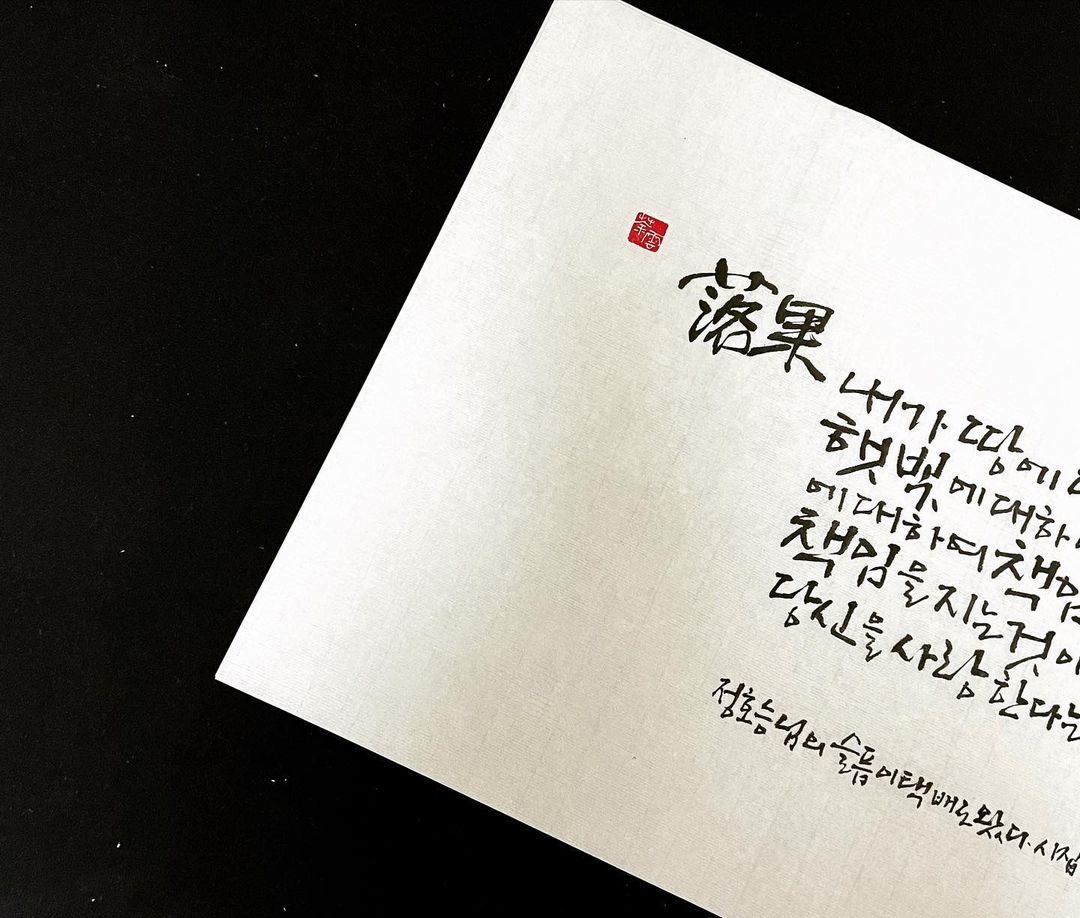 落果
내가 땅에
햇빛에 대하
에 대하여 책임
책임을 지는 것이
당신을 사랑한다는
정호승님의 슬픔이 택배로 왔다. 시집